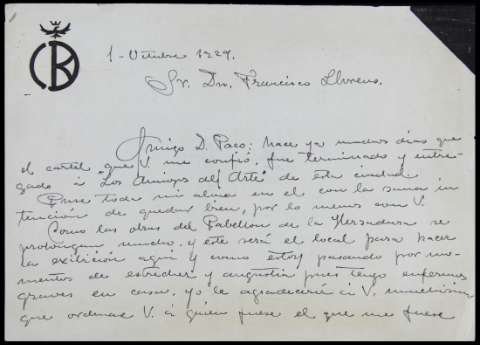 1 - Octubre 1929.
Sr. Dn. Francisco Llorens.
Amigo D. Paco: hace ya muchos dias que
el cartel que V. me confió, fue terminado y entre-
gado a "Los Amigos del Arte" de esta ciudad.
Puse toda mi alma en el con la sana in
tención de quedar bien, por lo menos con V.
Como las obras del Pabellon de la Herradura se
prolongan mucho, y este será el local para hacer
la exibición aqui y como estoy pasando por mo-
mentos de estrechez y angustia pues tengo enfermos
graves en casa, yo le agradeceré a V. muchisimo
que ordenase V. a quien fuese el que me fuese